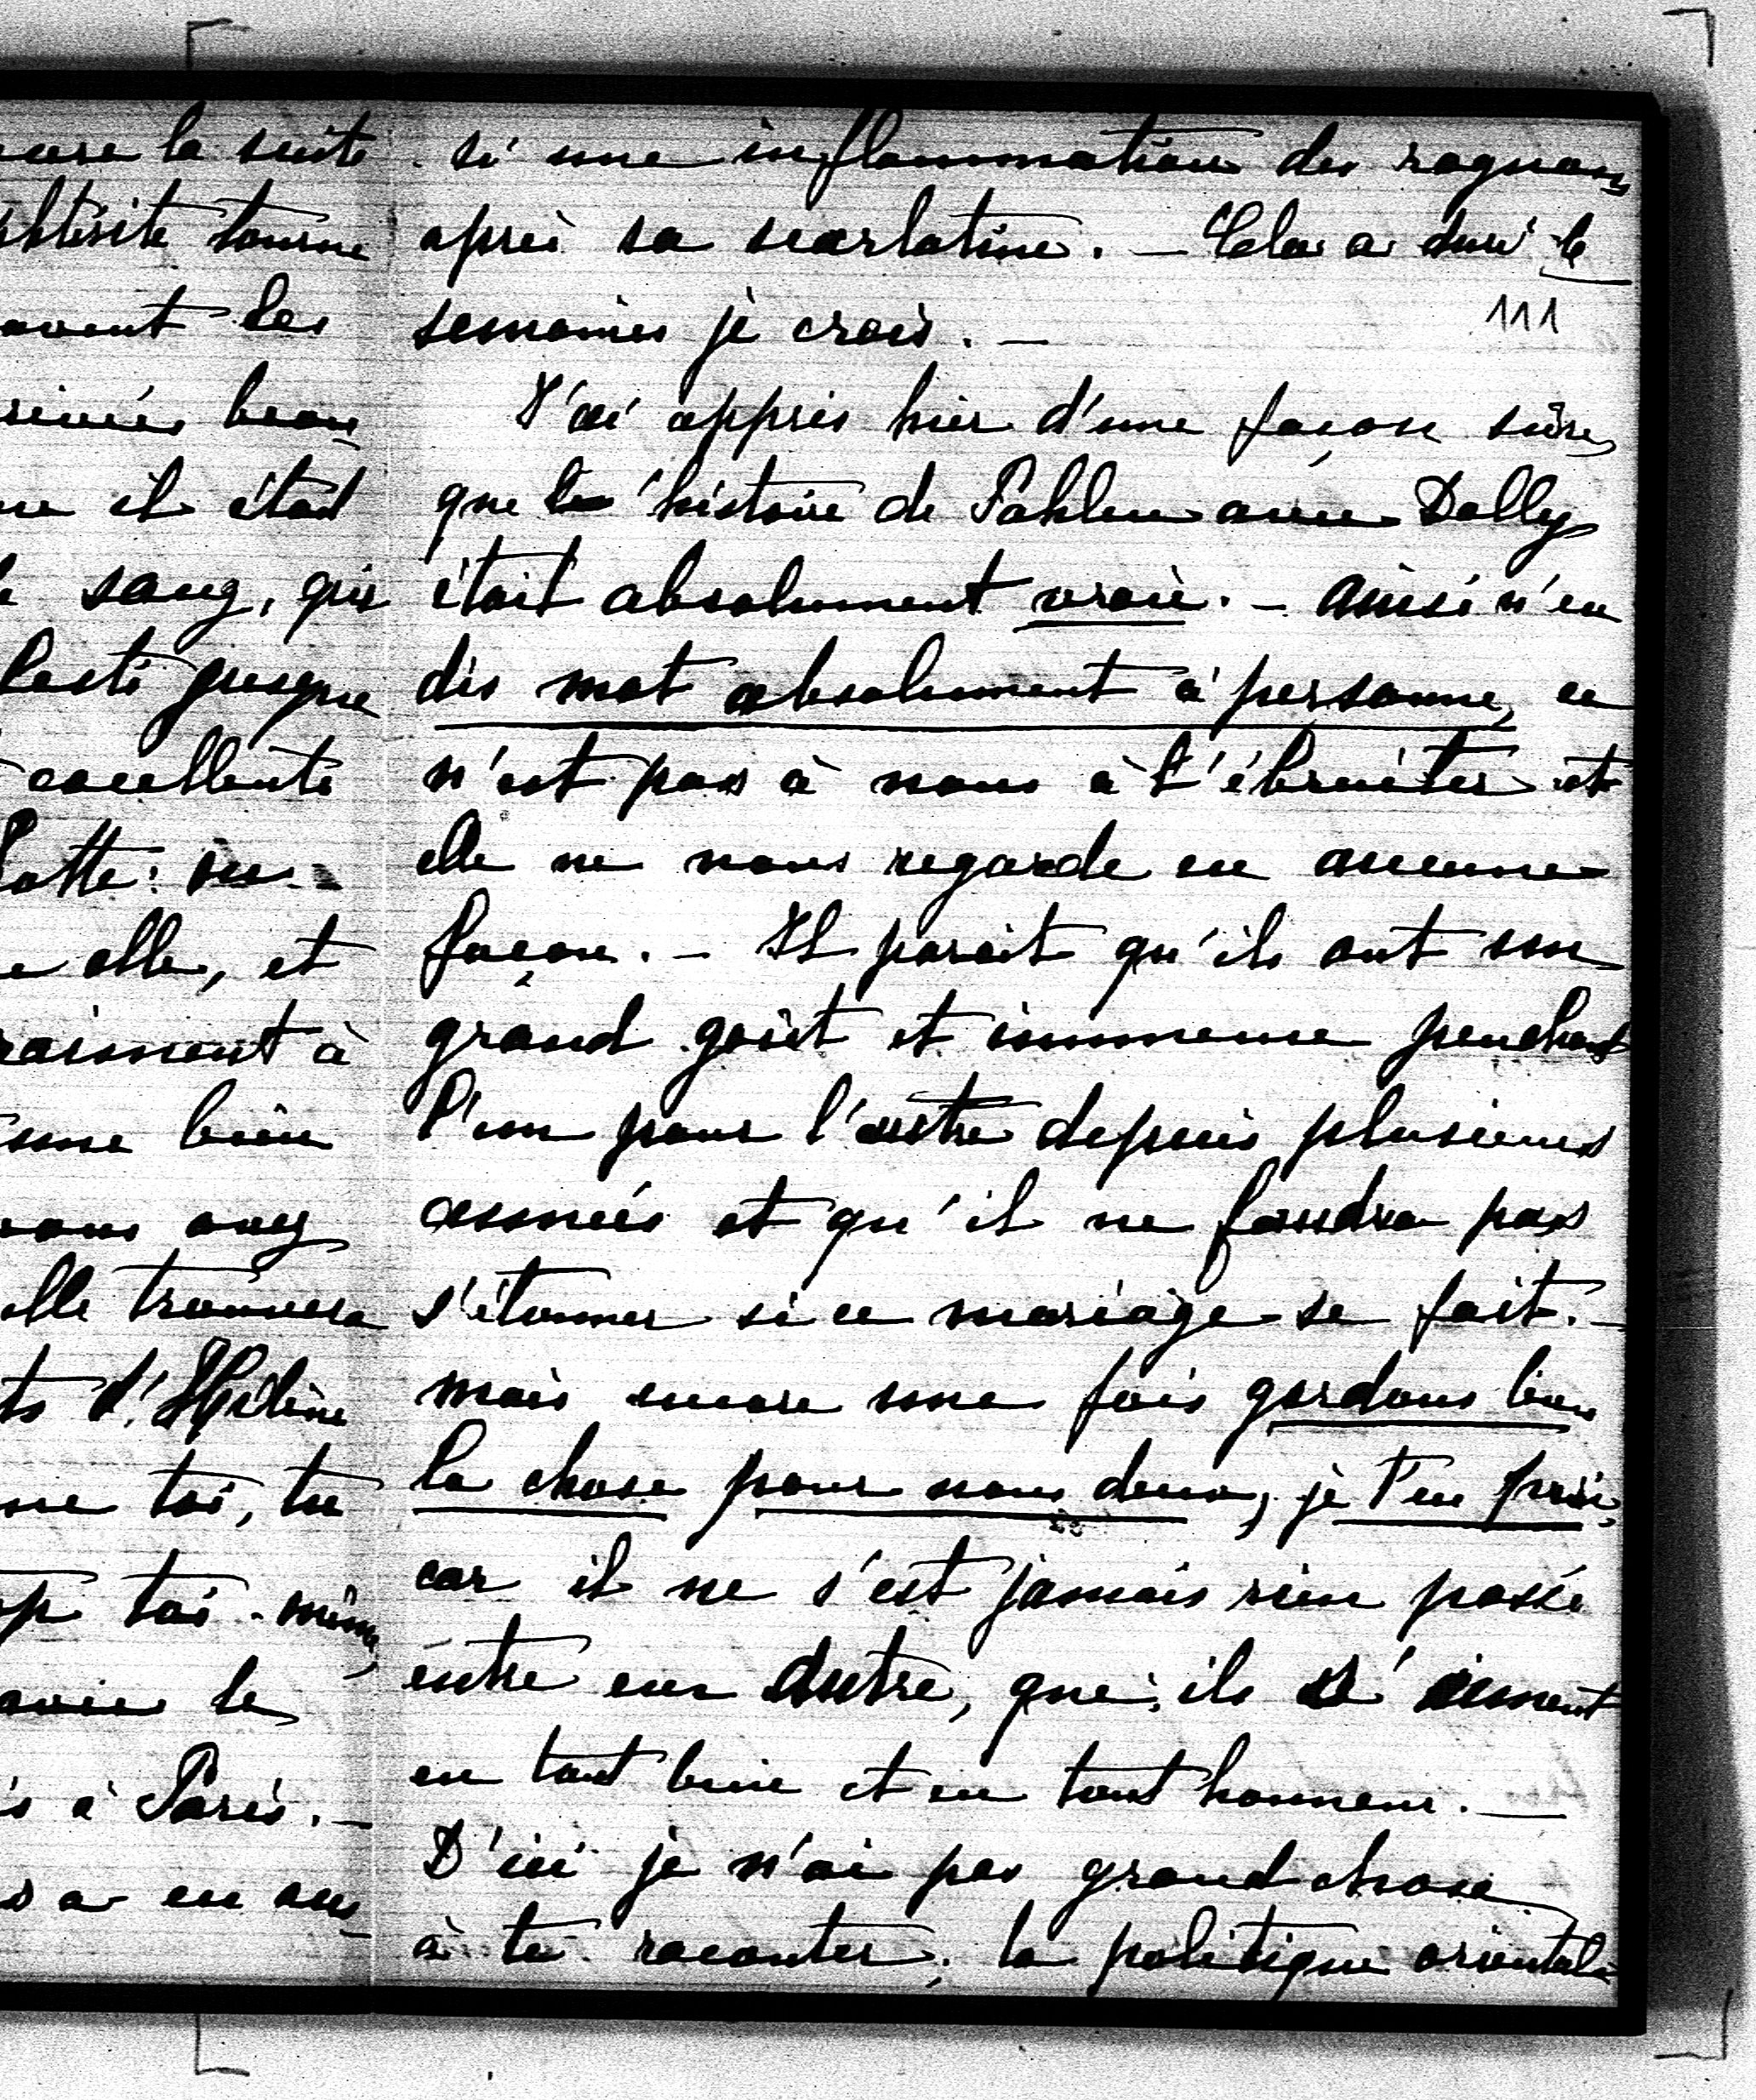 la suite
tourne
avent les
beau
il était
sang, qui
presque
excellente
elle, et
à
bien
vous avez
elle trouvera
d'Hélène
toi, tu
toi-même,
le
à Paris. —
a eu au
si une inflammation des rognons
après sa scarlatine. — Cela a duré 6
111
semaines je crois. —
J'ai appris hier d'une façon sûre,
que l'histoire de Pahlen avec Dolly
était absolument vraie. — ainsi n'en
dis mot absolument à personne, ce
n'est pas à nous à l'ébruiter et
elle ne nous regarde en aucune
façon. — Il parait qu'ils ont un
grand goût et immense penchant
l'un pour l'autre depuis plusieurs
années et qu'il ne faudra pas
s'étonner si ce mariage se fait. —
mais encore une fois gardons bien
la chose pour nous deux, je t'en prie,
car il ne s'est jamais rien passé
entre eux autre, que, ils s'aiment
en tout bien et en tout honneur. —
D'ici je n'ai pas grand chose
à te raconter; la politique orientale